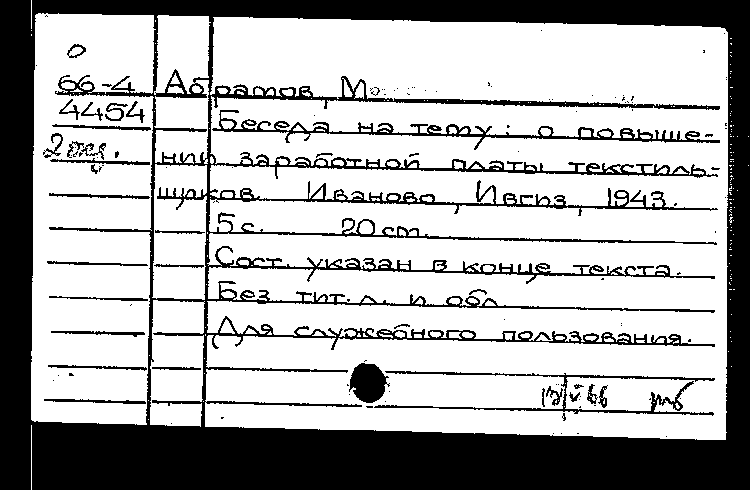 О
66-4 Абрамов, М
4454 Беседа на тему: о повыше-
2 экз. нии заработной платы текстиль-
щиков. Иваново, Ивгиз, 1943.
5 с. 20 см.
Сост. указан в конце текста.
Без тит. л. и обл.
Для служебного пользования.
13/V 66